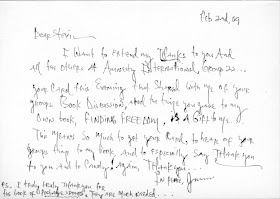 Feb 2nd, 09
Dear
I want to extend my Thanks to you And
All the others at Amnesty International, Group 22...
Your Card this Evening that Shared with me of your
groups Book Discussion, and the things you gave to my
own book, FINDING FREEDOM, is A Gift to me.
This means so much to get your Card, to hear of your
groups to my book, and to especially say Thank you
to you And to Candy. Again, Thank you...
In peace,
P.S. I truly truly Thank you for
the book of postage stamps, They are much needed...